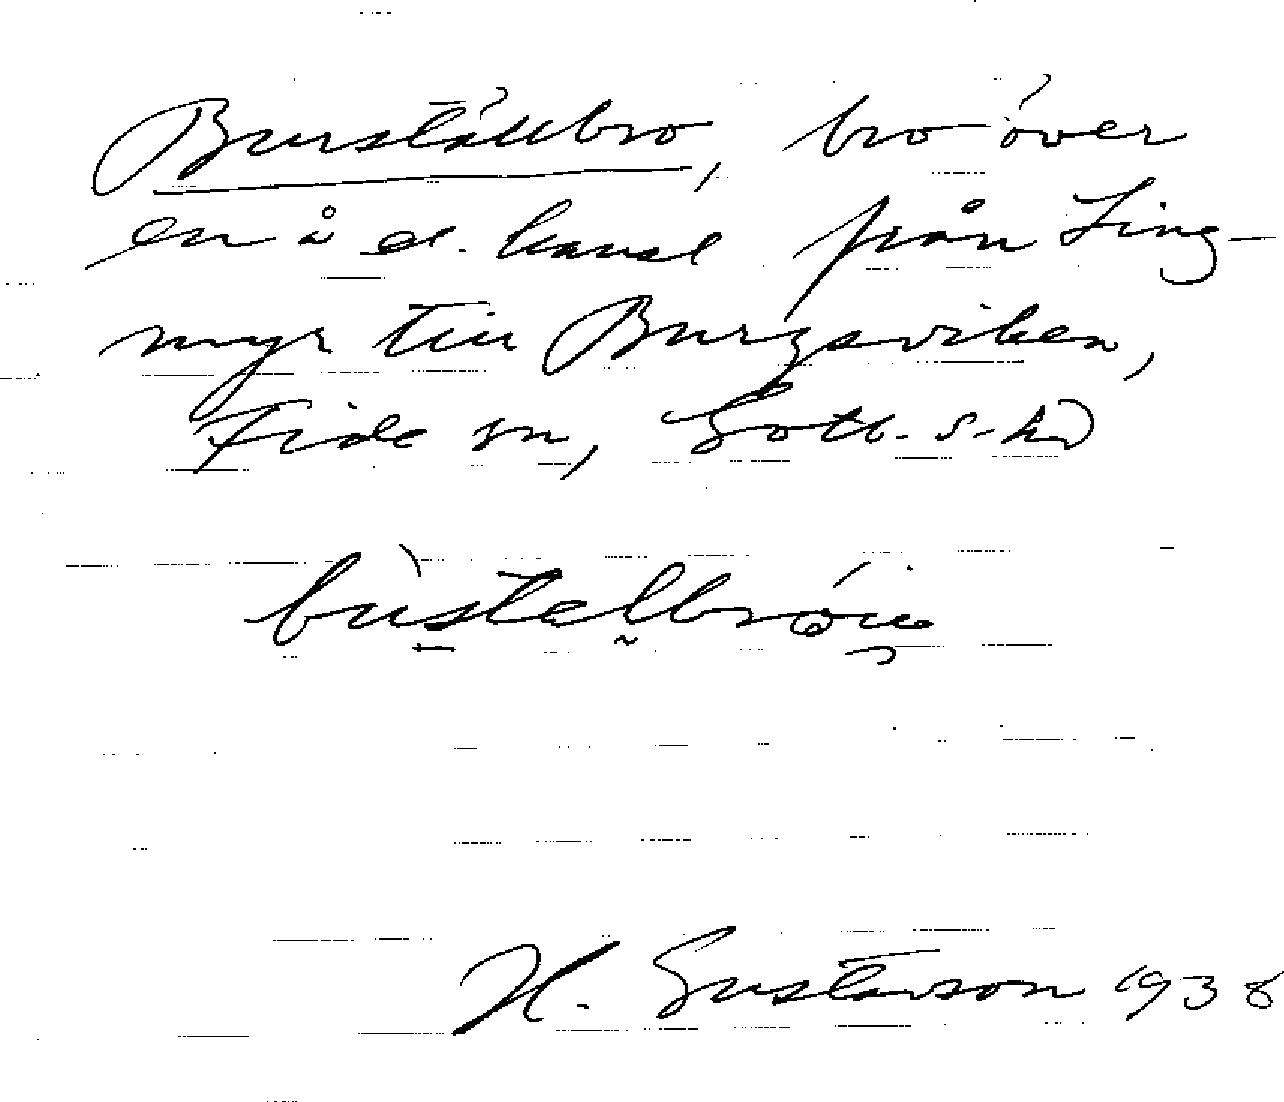 Burställbro, bro över
en å el. kanal från Ling-
myr till Burgsviken,
Fide sn, Gotl. s. hd
H. Gustavson 1938